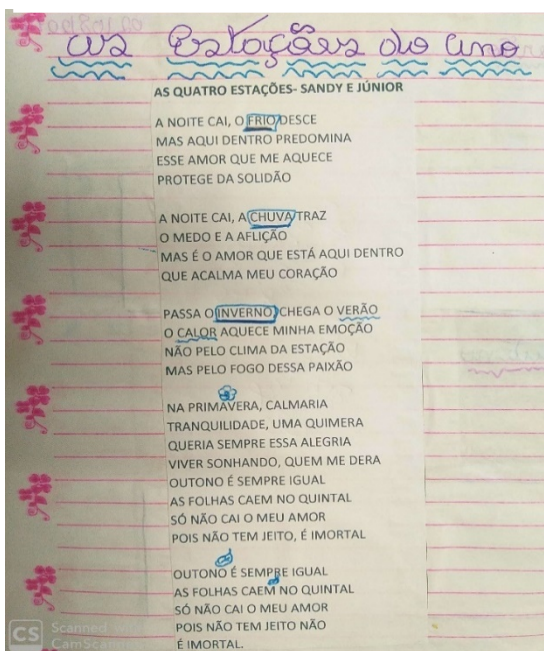 As Estações do Ano
AS QUATRO ESTAÇÕES- SANDY E JÚNIOR
A NOITE CAI, O FRIO DESCE
MAS AQUI DENTRO PREDOMINA
ESSE AMOR QUE ME AQUECE
PROTEGE DA SOLIDÃO
A NOITE CAI, A CHUVA TRAZ
O MEDO E A AFLIÇÃO
MAS É O AMOR QUE ESTÁ AQUI DENTRO
QUE ACALMA MEU CORAÇÃO
PASSA O INVERNO, CHEGA O VERÃO
O CALOR AQUECE MINHA EMOÇÃO
NÃO PELO CLIMA DA ESTAÇÃO
MAS PELO FOGO DESSA PAIXÃO
NA PRIMAVERA, CALMARIA
TRANQUILIDADE, UMA QUIMERA
QUERIA SEMPRE ESSA ALEGRIA
VIVER SONHANDO, QUEM ME DERA
OUTONO É SEMPRE IGUAL
AS FOLHAS CAEM NO QUINTAL
SÓ NÃO CAI O MEU AMOR
POIS NÃO TEM JEITO, É IMORTAL
OUTONO É SEMPRE IGUAL
AS FOLHAS CAEM NO QUINTAL
SÓ NÃO CAI O MEU AMOR
POIS NÃO TEM JEITO NÃO
É IMORTAL.
CS Scanned with
CamScanner